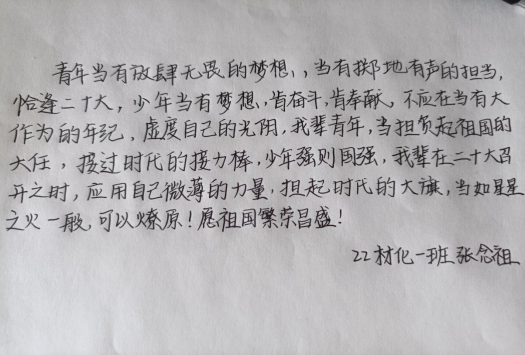 青年当有放肆无畏的梦想,，当有掷地有声的担当,
恰逢二十大，少年当有梦想,肯奋斗,肯奉献,不应在当有大
作为的年纪、虚度自己的光阴,我辈青年,当担负起祖国的
大任，接过时代的接力棒,少年强则国强,我辈在二十大召
开之时,应用自己微薄的力量,担起时代的大旗,当如星星
之火一般,可以燎原!愿祖国繁荣昌盛!
22材化一班 张念祖